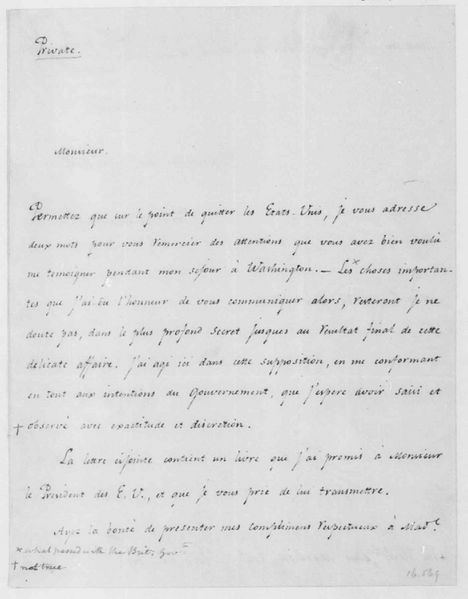 Private.
Monsieur.
Permettez que sur le point de quitter les Etats-Unis, je vous adresse
deux mots pour vous remercier des attentions que vous avez bien voulu
me temoigner pendant mon sejour à Washington. — Les × choses importan-
tes que j'ai eu l'honneur de vous communiquer alors, resteront je ne
doute pas, dans le plus profond secret jusques au resultat final de cette
delicate affaire. J'ai agi ici dans cette supposition, en me conformant
en tout aux intentions du Gouvernement, que j'espere avoir saisi et
+ observé avec exactitude et discretion.
La lettre cijointe contient un livre que j'ai promis à Monsieur
le President des E. U., et que je vous prie de lui transmettre.
Ayez la bonté de presenter mes complimens respectueux à Made
× what passed with the Brith Govt
+ not true
16.569